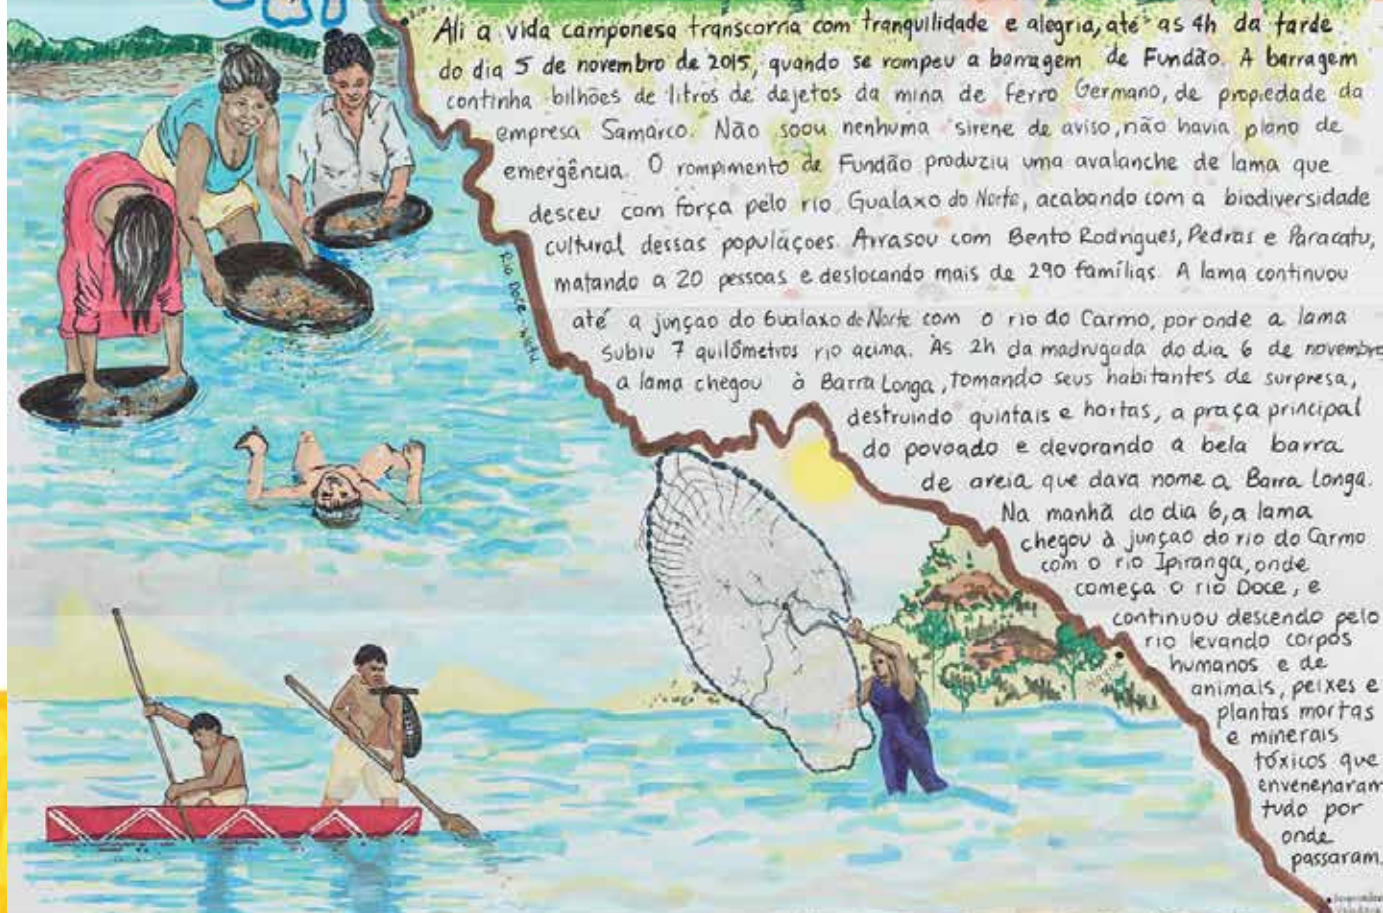 Ali a vida camponesa transcorria com tranquilidade e alegria, até as 4h da tarde
do dia 5 de novembro de 2015, quando se rompeu a barragem de Fundão. A barragem
continha bilhões de litros de dejetos da mina de ferro Germano, de propiedade da
empresa Samarco. Não soou nenhuma sirene de aviso, não havia plano de
emergência. O rompimento de Fundão produziu uma avalanche de lama que
desceu com força pelo rio Gualaxo do Norte, acabando com a biodiversidade
cultural dessas populaçoes. Arrasou com Bento Rodrigues, Pedras e Paracatu,
matando a 20 pessoas e deslocando mais de 290 famílias. A lama continuou
até a junçao do Gualaxo de Norte com o rio do Carmo, por onde a lama
subiu 7 quilômetros rio acima. As 2h da madrugada do dia 6 de novembro
a lama chegou à Barra Longa, tomando seus habitantes de surpresa,
destruindo quintais e hortas, a praça principal
do povoado e devorando a bela barra
de areia que dava nome a Barra Longa.
Na manhã do dia 6, a lama
chegou à junçao do rio do Carmo
com o rio Ipiranga, onde
começa o rio Doce, e
continuou descendo pelo
rio levando corpos
humanos e de
animais, peixes e
plantas mortas
e minerais
tóxicos que
envenenaram
tudo por
onde
passaram.
Rio Doce